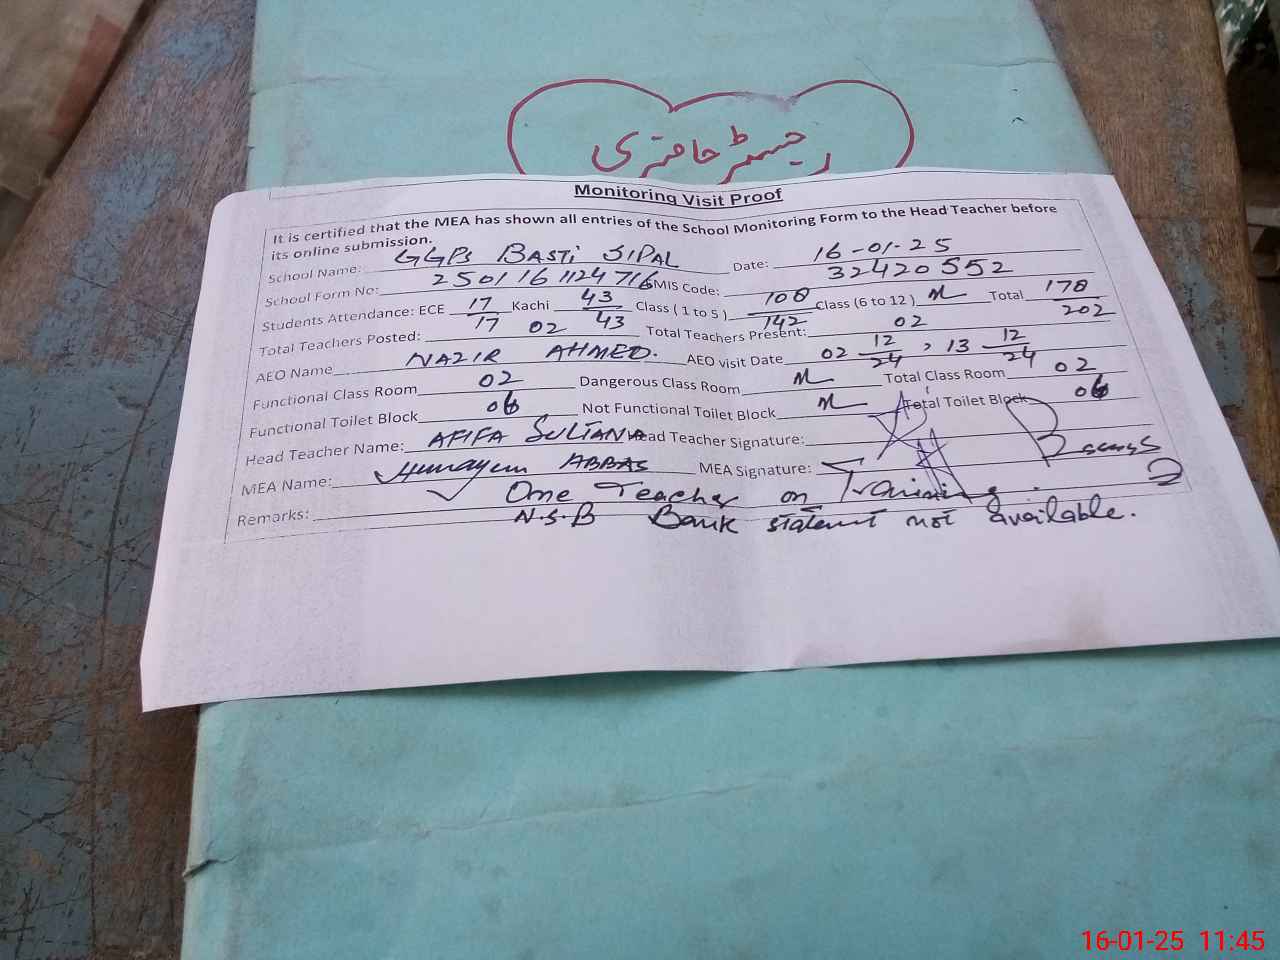 رجسٹر حاضری
Monitoring Visit Proof
It is certified that the MEA has shown all entries of the School Monitoring Form to the Head Teacher before
its online submission.
School Name: GGPS BASTI SIPAL Date: 16-01-25
School Form No: 2501161124716 EMIS Code: 32420552
Students Attendance: ECE 17/17 Kachi 43/43 Class ( 1 to 5 ) 108/142 Class (6 to 12 ) Total 178/202
Total Teachers Posted: 02 Total Teachers Present: 02
AEO Name NAZIR AHMED. AEO visit Date 02 12/24, 13 12/24
Functional Class Room 02 Dangerous Class Room Total Class Room 02
Functional Toilet Block 06 Not Functional Toilet Block Total Toilet Block 06
Head Teacher Name: AFIFA SULTANA Head Teacher Signature:
MEA Name: Humayun ABBAS MEA Signature:
Remarks: One Teacher on Training.
N.S.B Bank statemt not available.
16-01-25 11:45